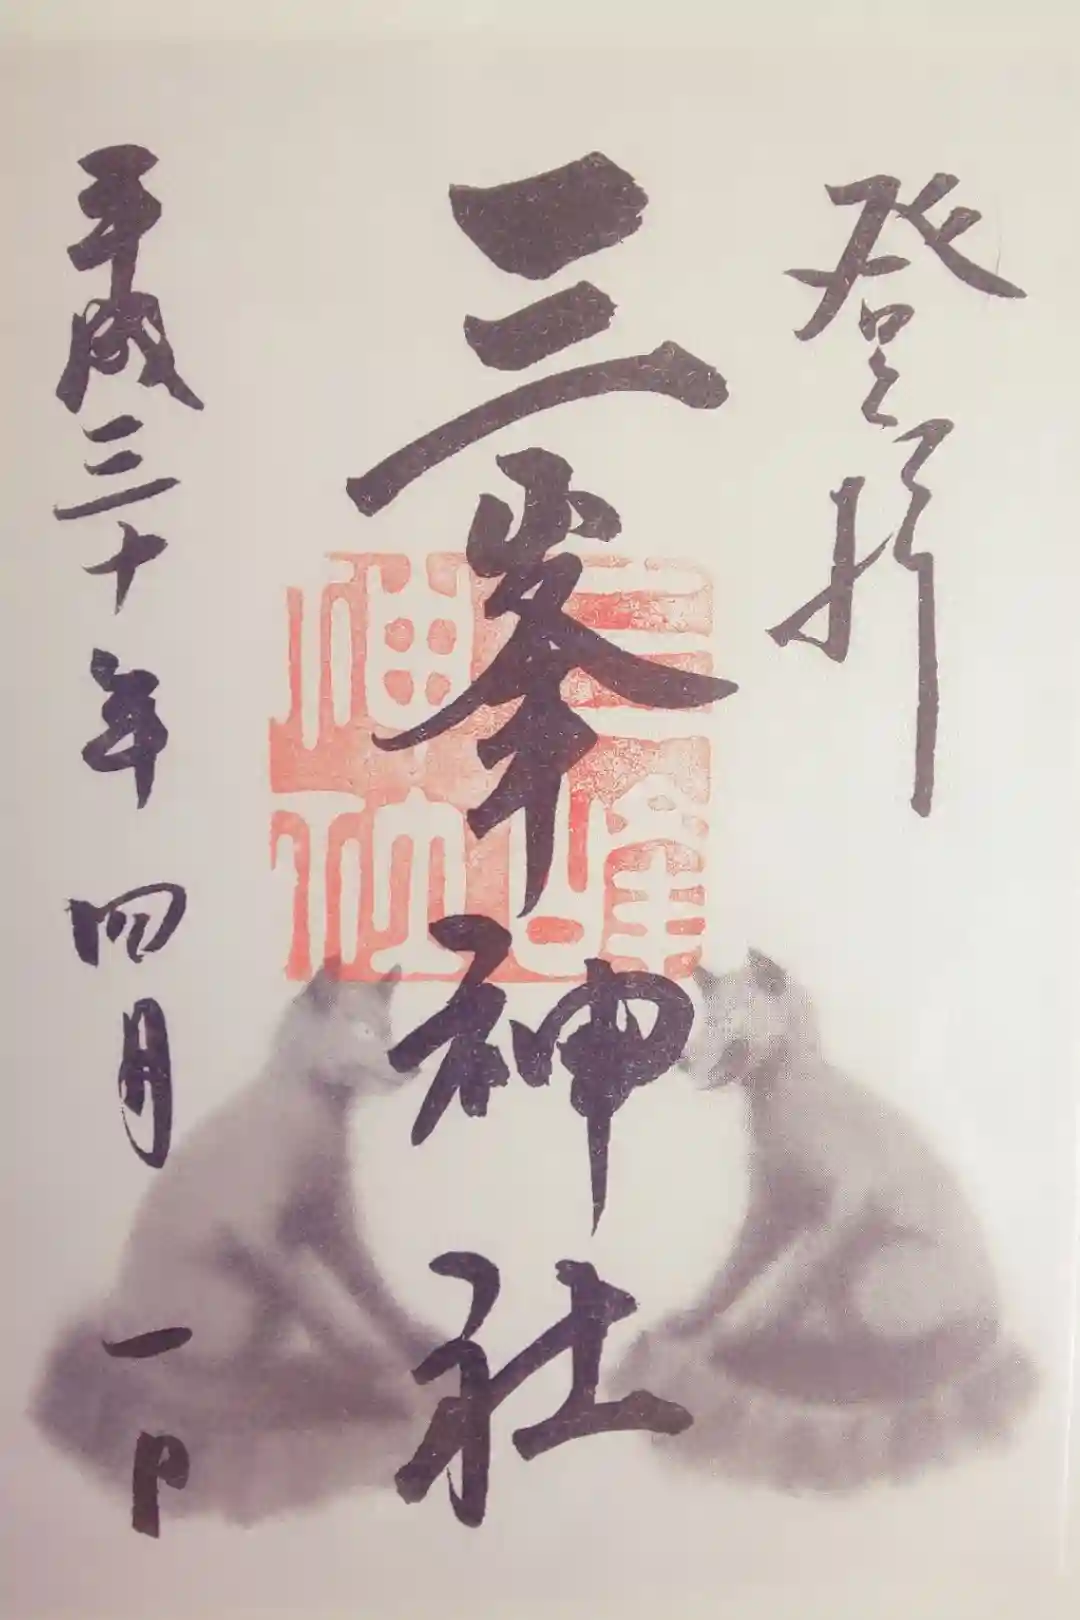 登拝
三峯神社
三峯神社
平成三十年四月一日